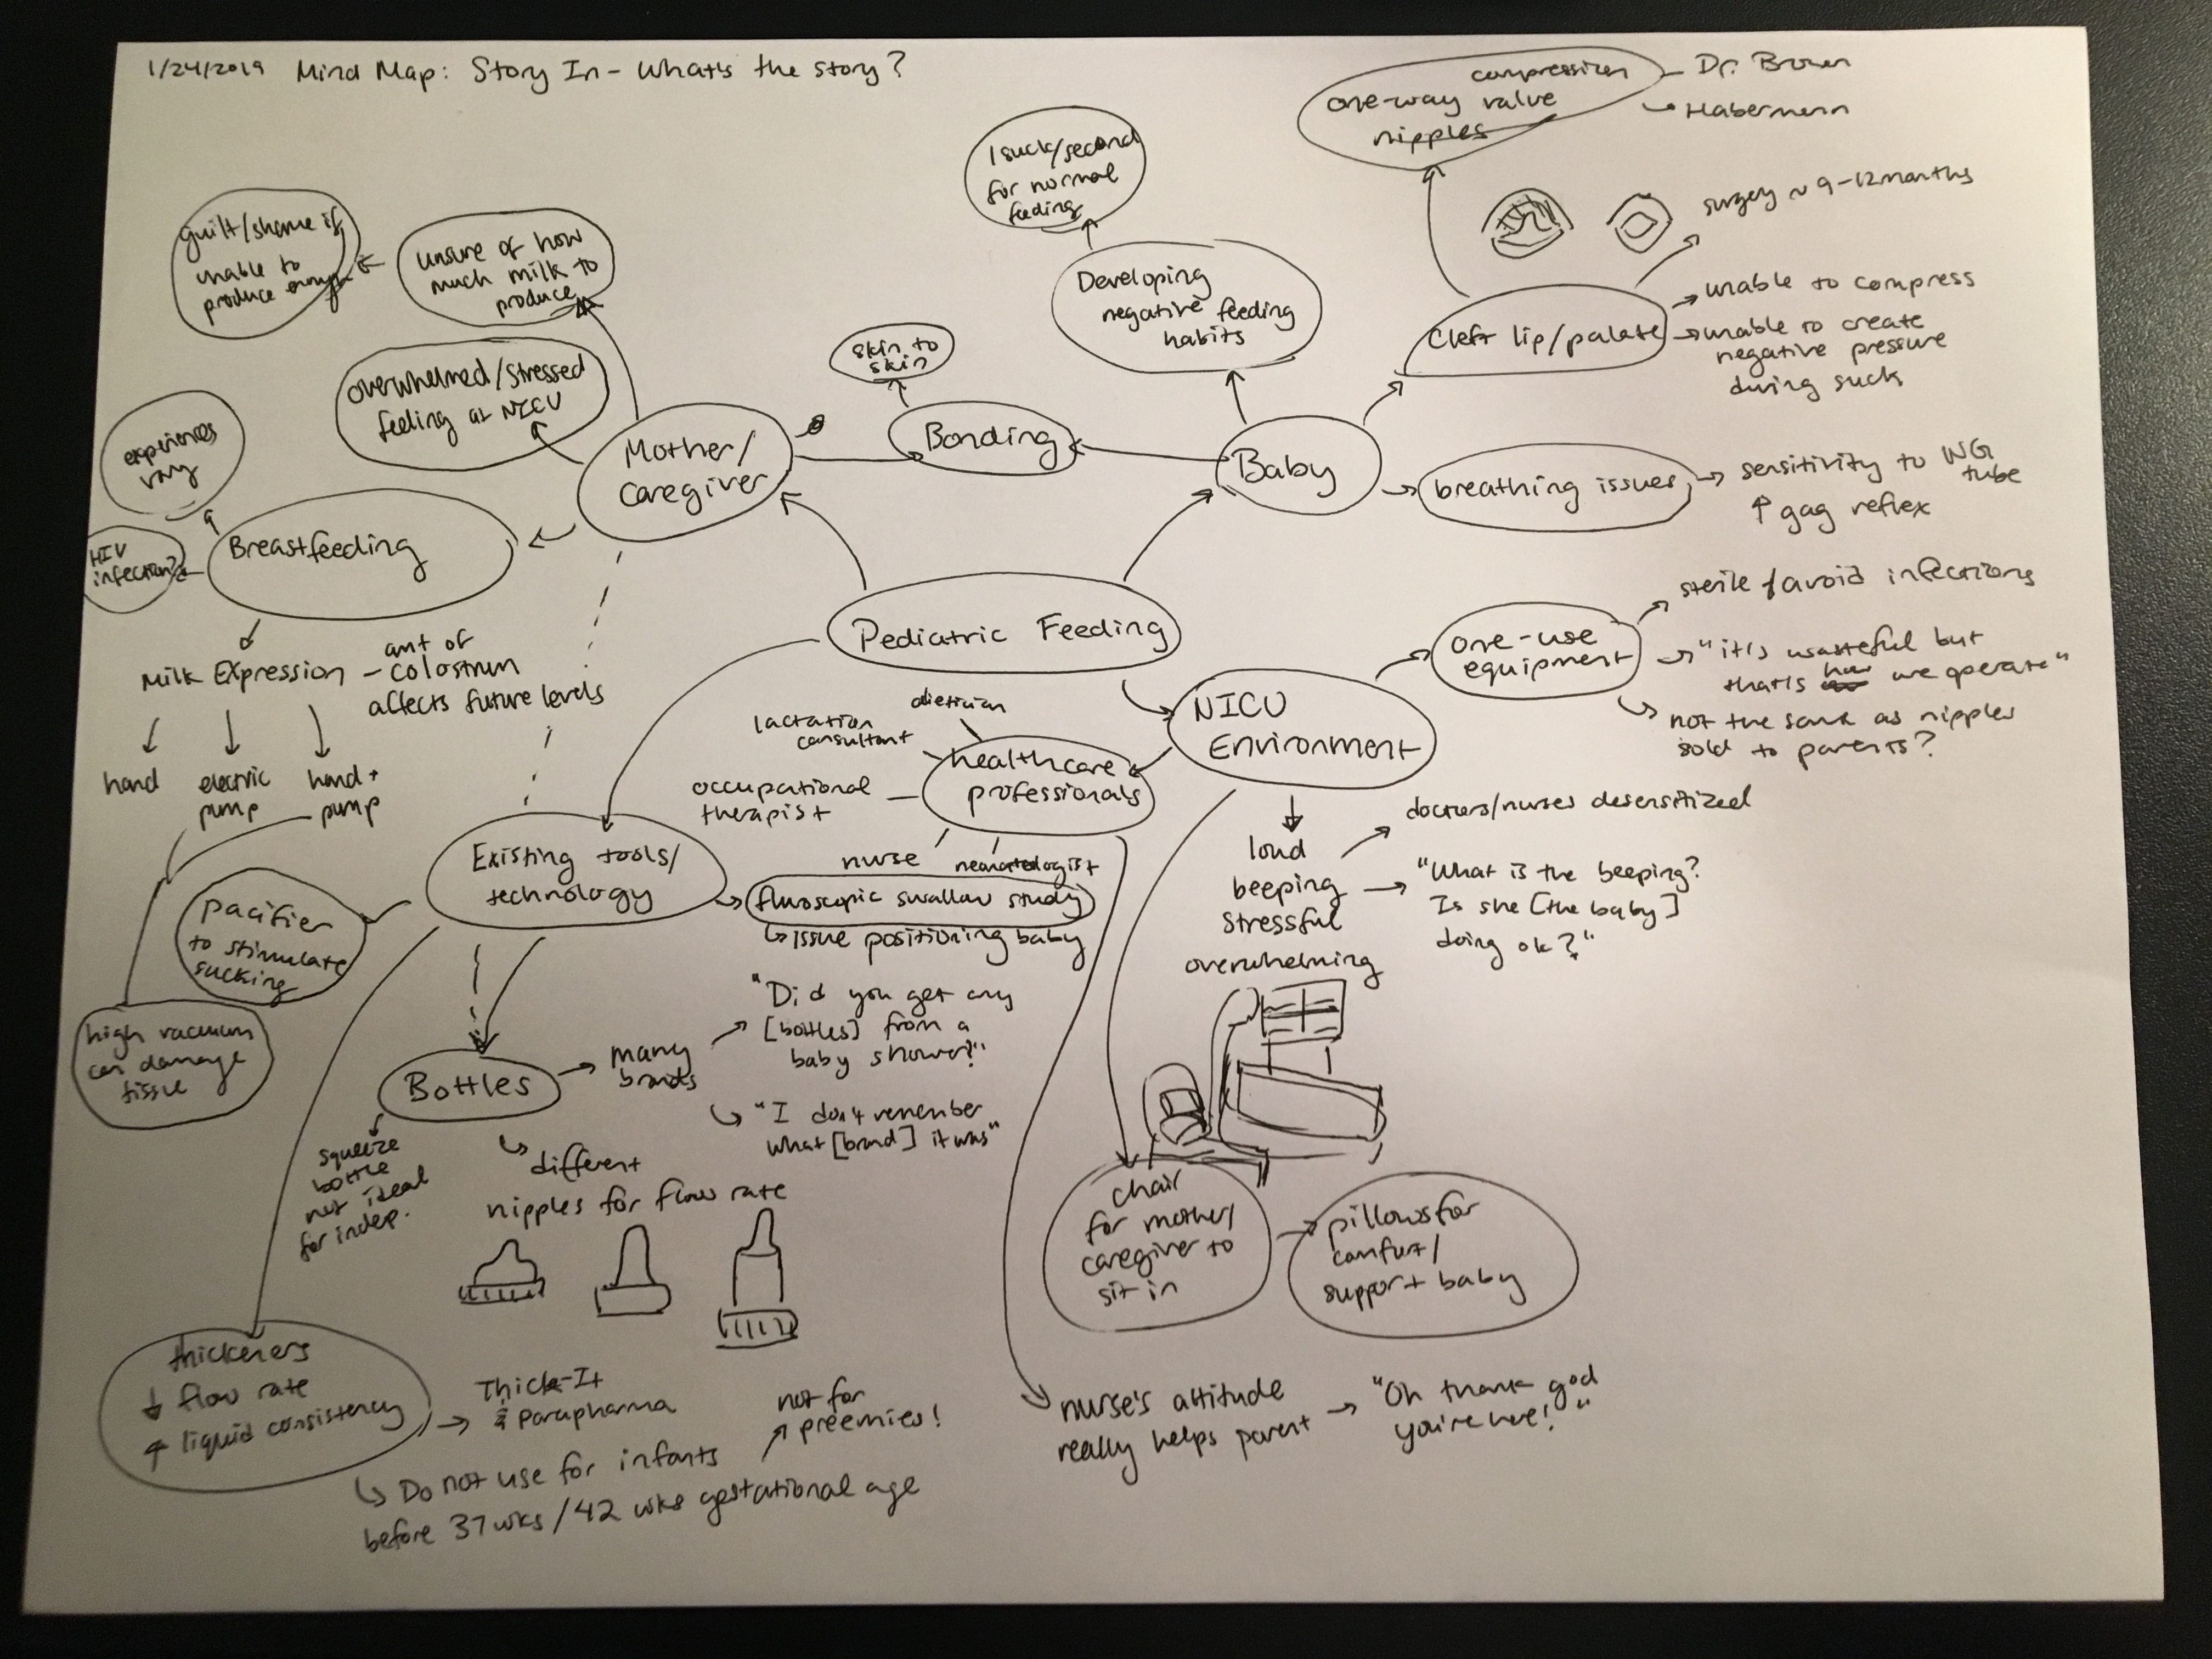 1/24/2019 Mind Map: Story In - What's the story?
compression
one-way valve
nipples
- Dr. Brown
Habermann
1 suck/second
for normal
feeding
surgery ~ 9-12 months
guilt/shame if
unable to
produce enough
unsure of how
much milk to
produce
Developing
negative feeding
habits
Cleft lip/palate
unable to compress
unable to create
negative pressure
during suck
skin to
skin
overwhelmed/stressed
feeling at NICU
experiences
vary
Mother/
Caregiver
Bonding
Baby
breathing issues
sensitivity to NG
tube
↑ gag reflex
Breastfeeding
HIV
infection?
Pediatric Feeding
one-use
equipment
sterile / avoid infections
"it's wasteful but
that's how we operate"
not the same as nipples
sold to parents?
Milk Expression
- amt of
colostrum
affects future levels
hand
electric
pump
hand +
pump
NICU
Environment
healthcare
professionals
dietician
lactation
consultant
occupational
therapist
nurse
neonatologist
loud
beeping
stressful
overwhelming
doctors/nurses desensitized
"What is the beeping?
Is she [the baby]
doing ok?"
Existing tools/
technology
fluroscopic swallow study
issue positioning baby
pacifier
to stimulate
sucking
high vacuum
can damage
tissue
Bottles
many
brands
"Did you get any
[bottles] from a
baby shower?"
"I don't remember
what [brand] it was"
squeeze
bottle
not ideal
for indep.
different
nipples for flow rate
chair
for mother/
caregiver to
sit in
pillows for
comfort/
support baby
thickeners
↓ flow rate
↑ liquid consistency
Thick-It
& Parapharma
Do not use for infants
before 37 wks / 42 wks gestational age
not for
preemies!
nurse's attitude
really helps parent
"Oh thank god
you're here!"